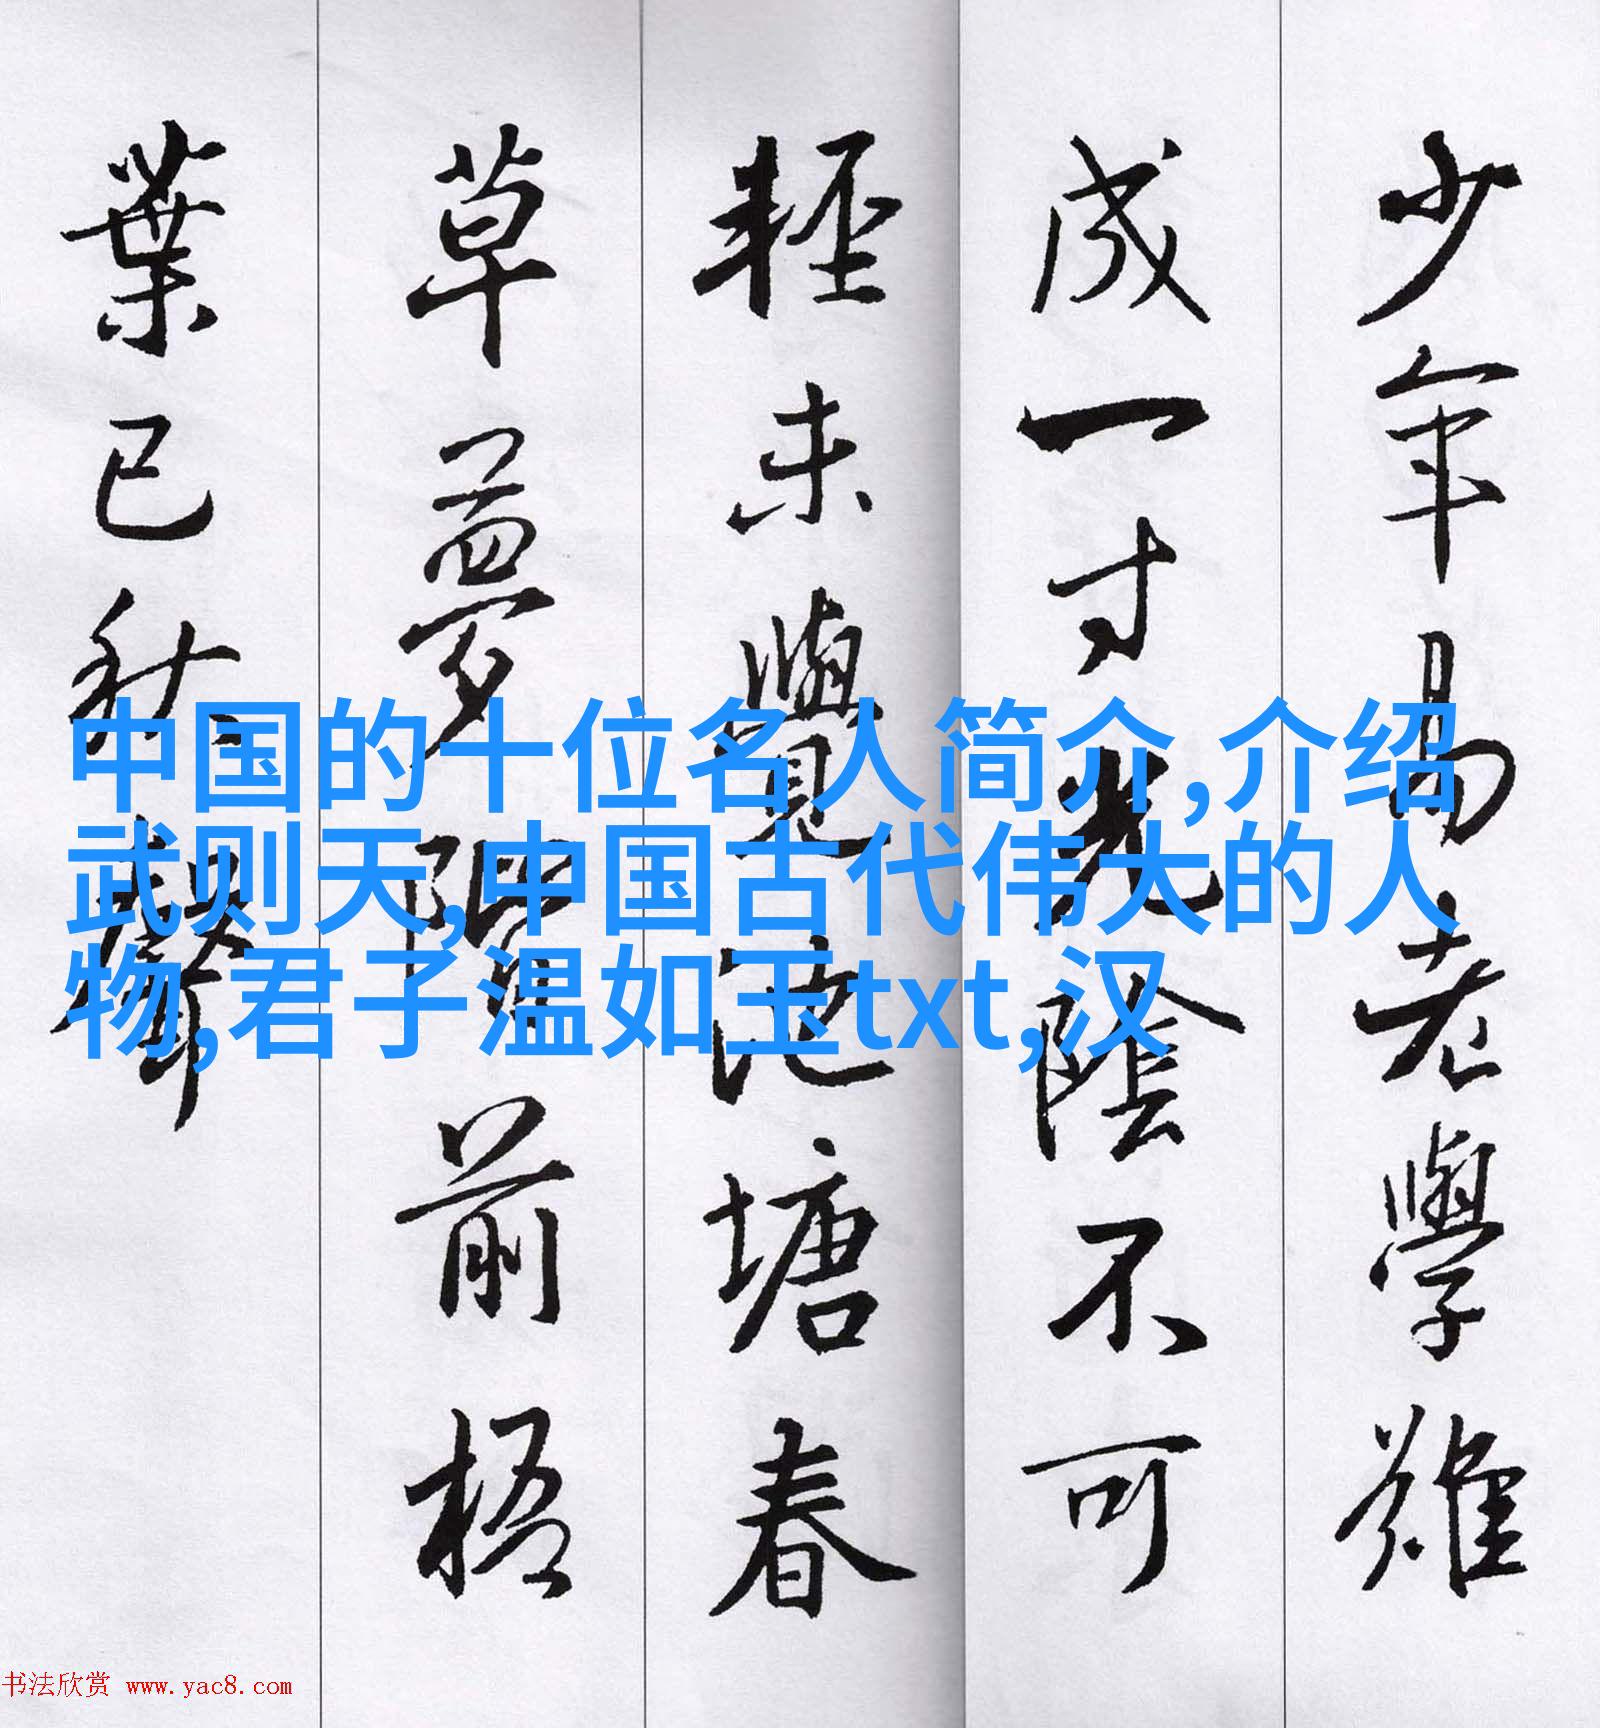 少年易老學難
成一寸光陰不可
輕未覺池塘春
草夢階前梧
葉已秋聲
中国的十位名人简介,介绍
武则天,中国古代伟大的人
物,君子温如玉txt,汉
书法欣赏 www.yac8.com